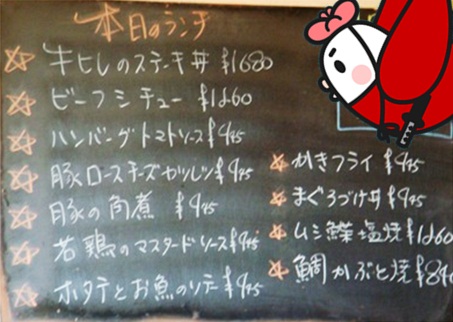 本日のランチ
牛ヒレのステーキ丼 $1680
ビーフシチュー $1260
ハンバーグトマトソース $945
豚ロースチーズカツレツ $945
豚の角煮 $945
若鶏のマスタードソース $945
ホタテとお魚のソテー $945
かきフライ $945
まぐろづけ丼 $945
ムシ鰈塩焼 $1260
鯛かぶと焼 $840